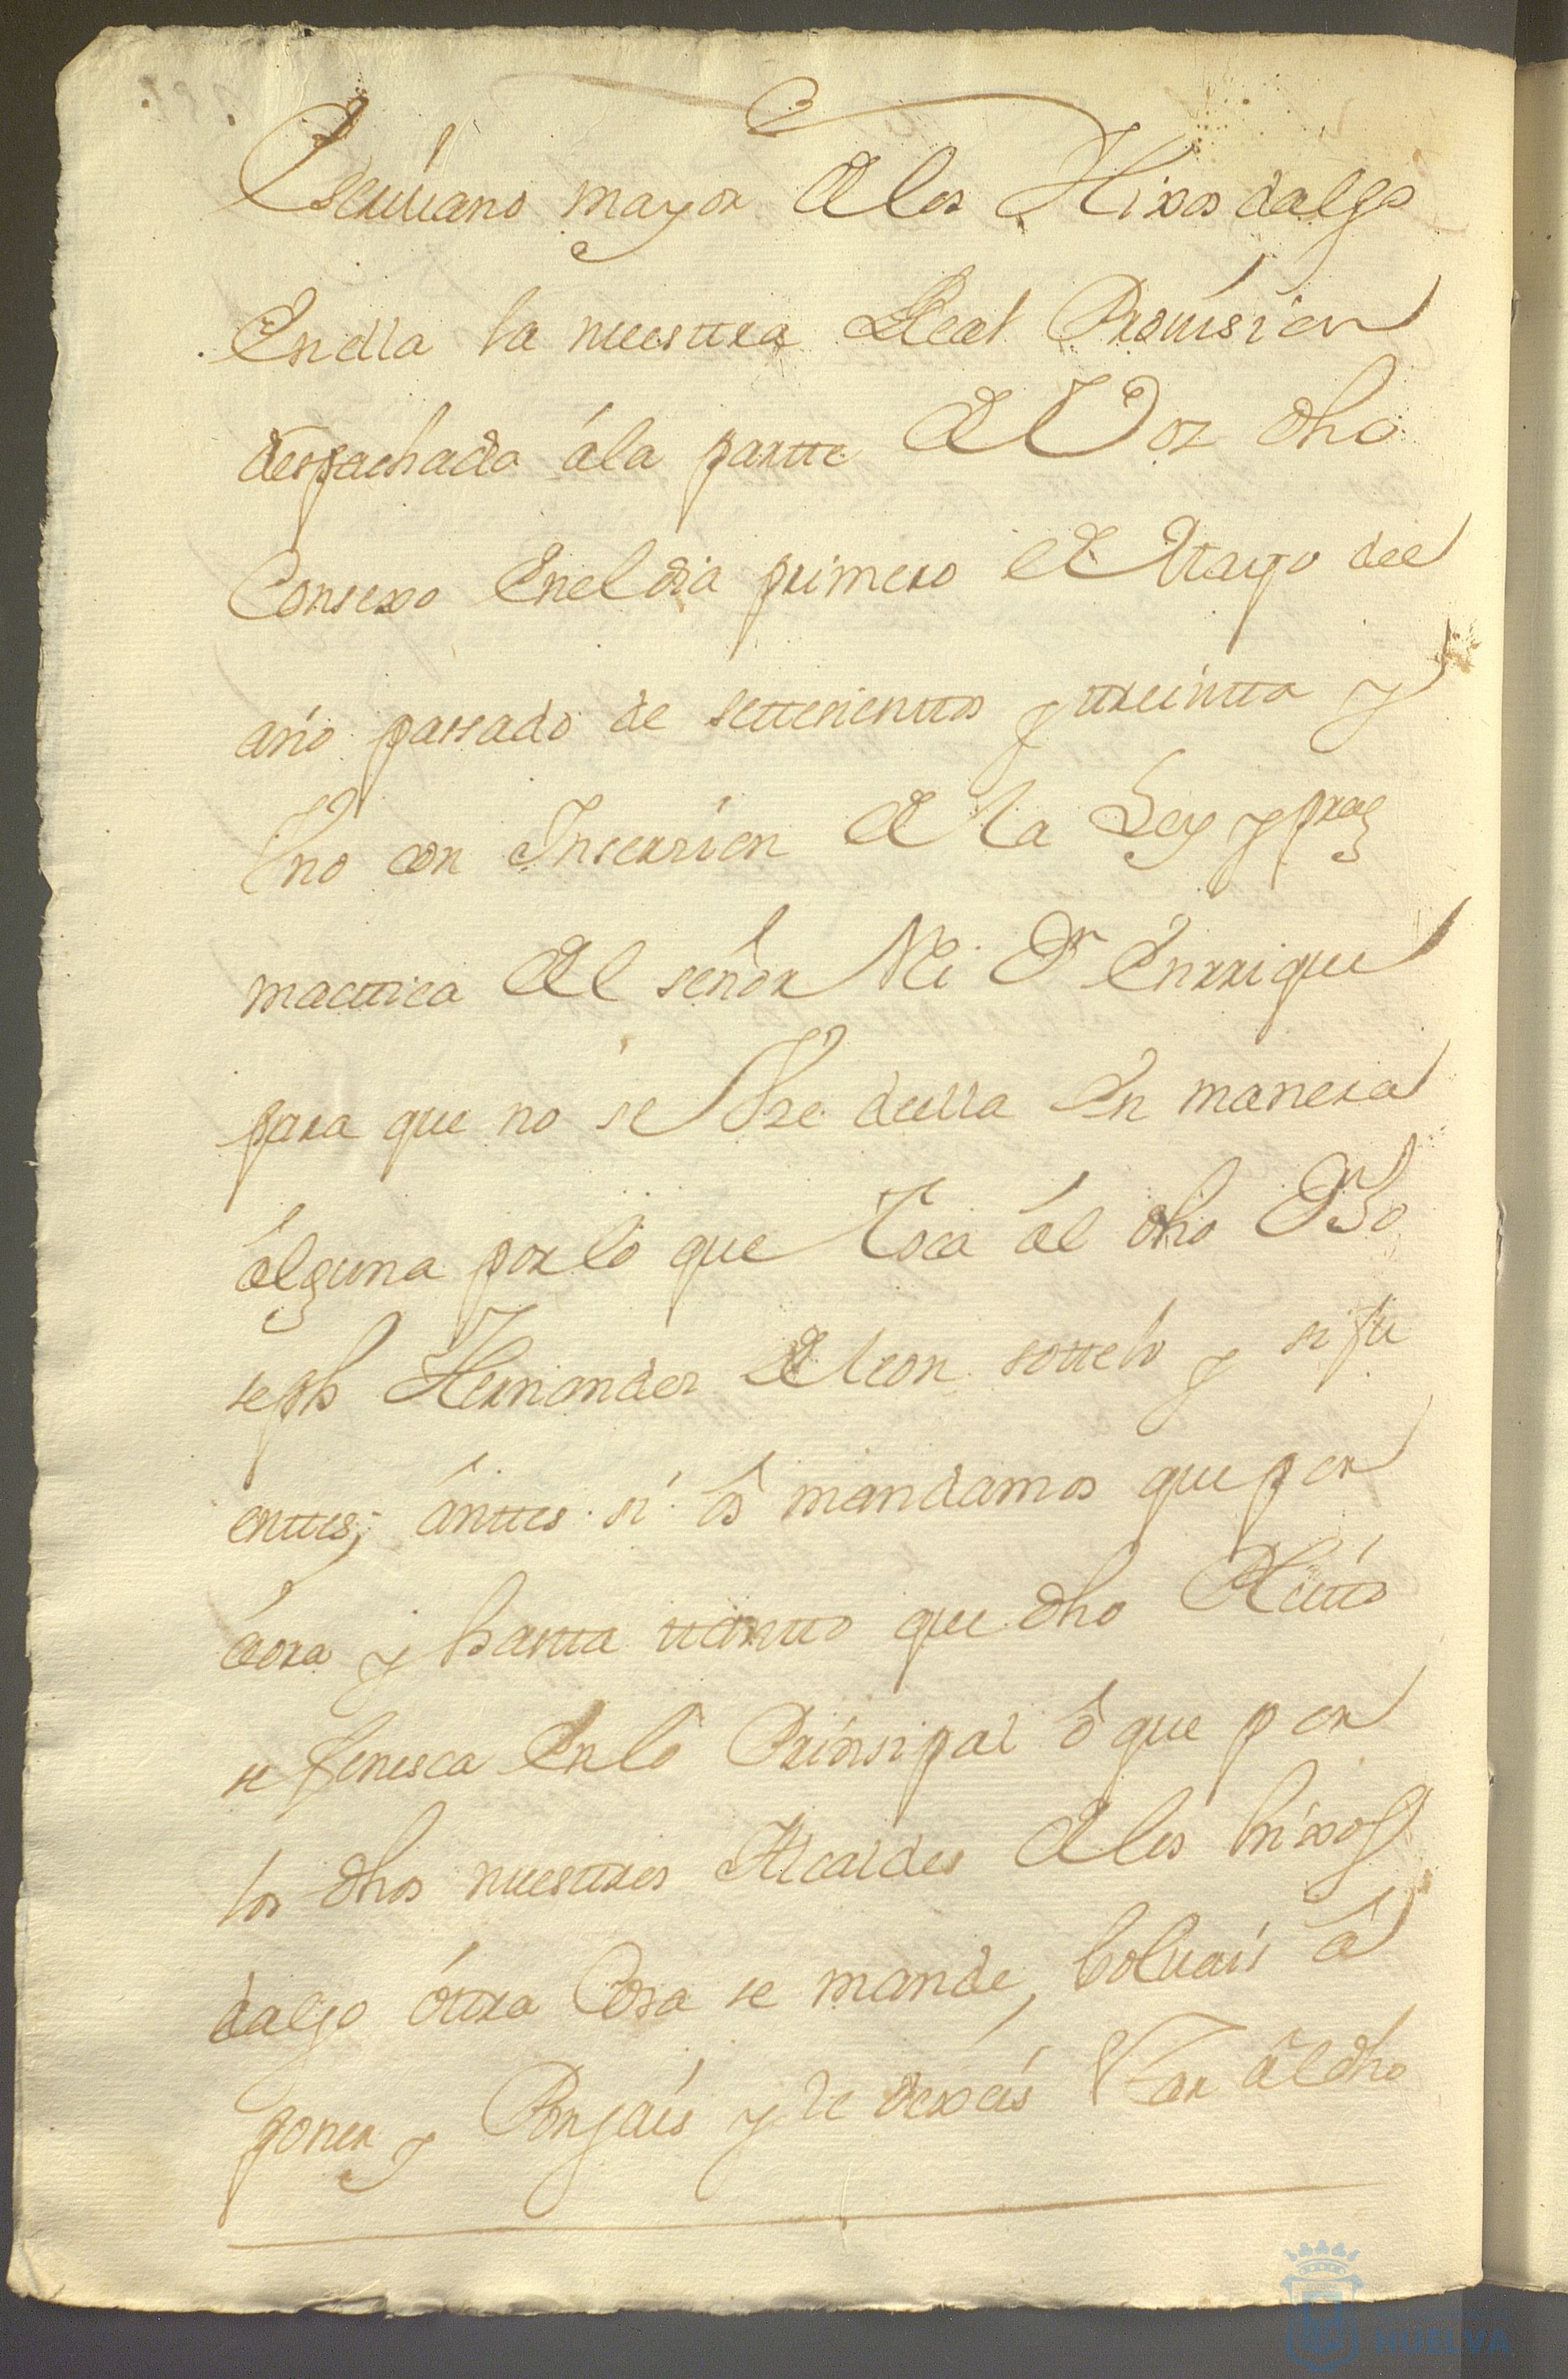 Escriuano mayor de los Hixosdalgo
En ella la nuestra Real Prouision
despachada ála partte de Vos dho
Consexo En el dia primero de Mayo del
año passado de settesienttos y treintta y
Vno con Insersion de la Ley y prag
mattica del señor Rei Dn Enrrique
para que no se Vse della En manera
álguna por lo que Toca ál dho Dn Jo
seph Hernandes de leon sottelo y si fu
enttes; ánttes si ôs mandamos que por
áora y hastta ttantto que dho Pleitto
se fenesca En lo Prinsipal ô que por
los dhos nuestros Alcaldes de los hixos
dalgo óttra Cosa se mande, boluais â
poner y Pongais y le dexeis Vsar âl dho
HUELVA